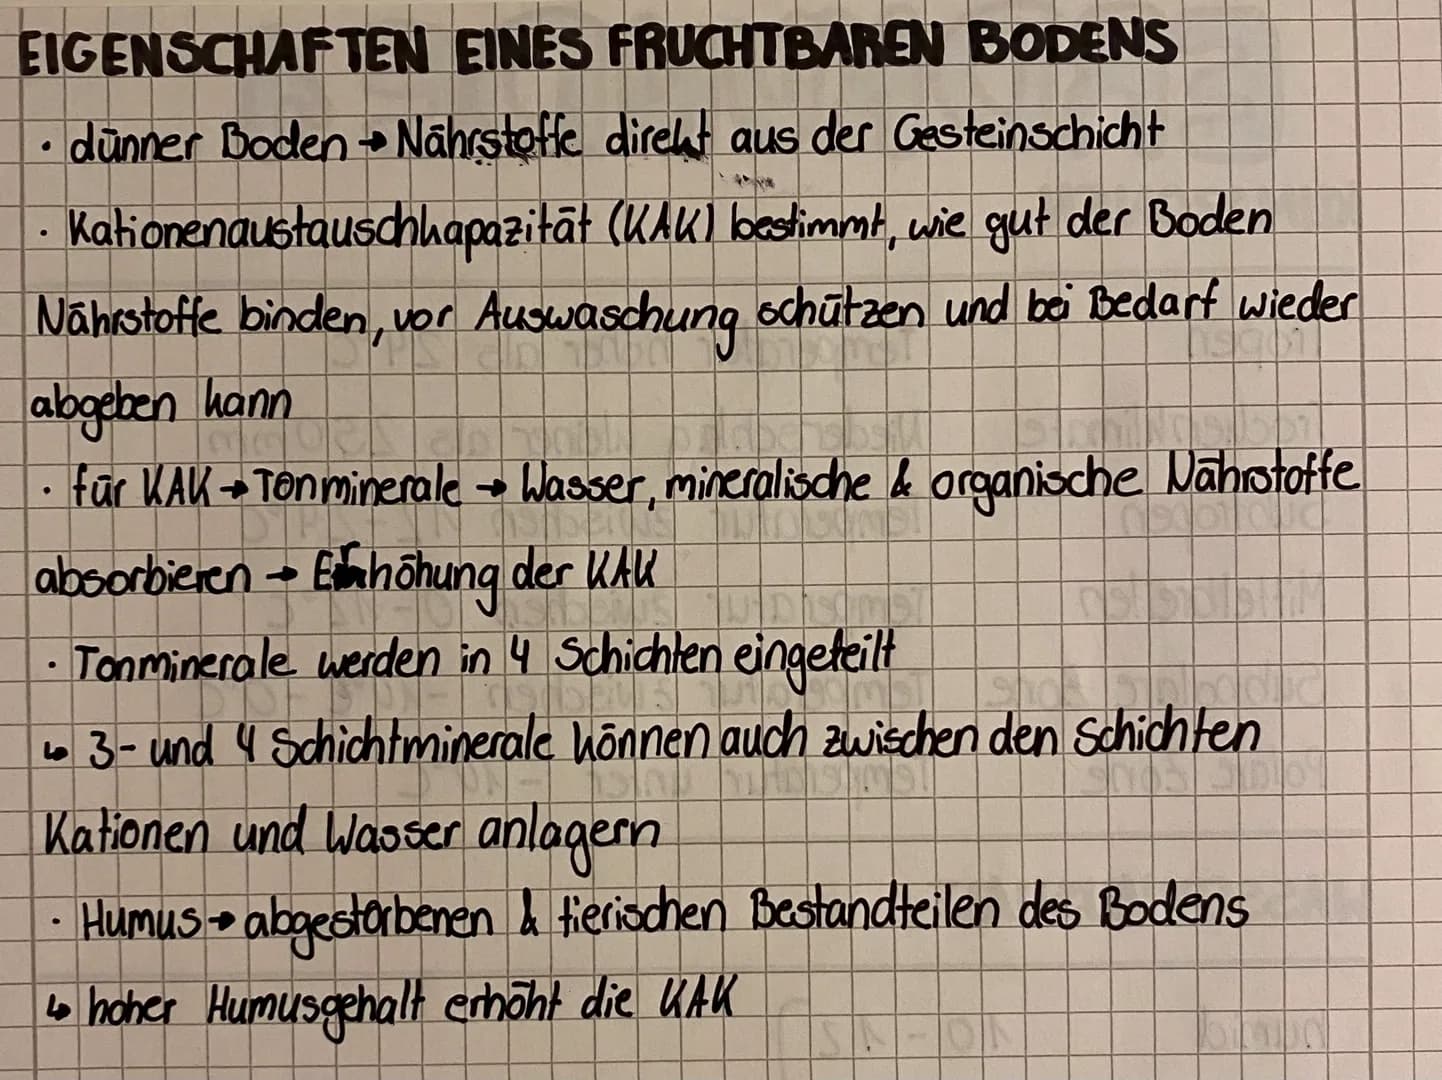 EIGENSCHAFTEN EINES FRUCHTBAREN BODENS
· dünner Boden → Nährstoffe direkt aus der Gesteinschicht
· Kationenaustauschkapazität (KAK) bestimmt, wie gut der Boden
Nährstoffe binden, vor Auswaschung schützen und bei Bedarf wieder
abgeben kann
· für KAK → Tonminerale → Wasser, mineralische & organische Nährstoffe
absorbieren → Erhöhung der KAK
· Tonminerale werden in 4 Schichten eingeteilt
↳ 3- und 4 Schichtminerale können auch zwischen den Schichten
Kationen und Wasser anlagern
· Humus → abgestorbenen & tierischen Bestandteilen des Bodens
↳ hoher Humusgehalt erhöht die KAK